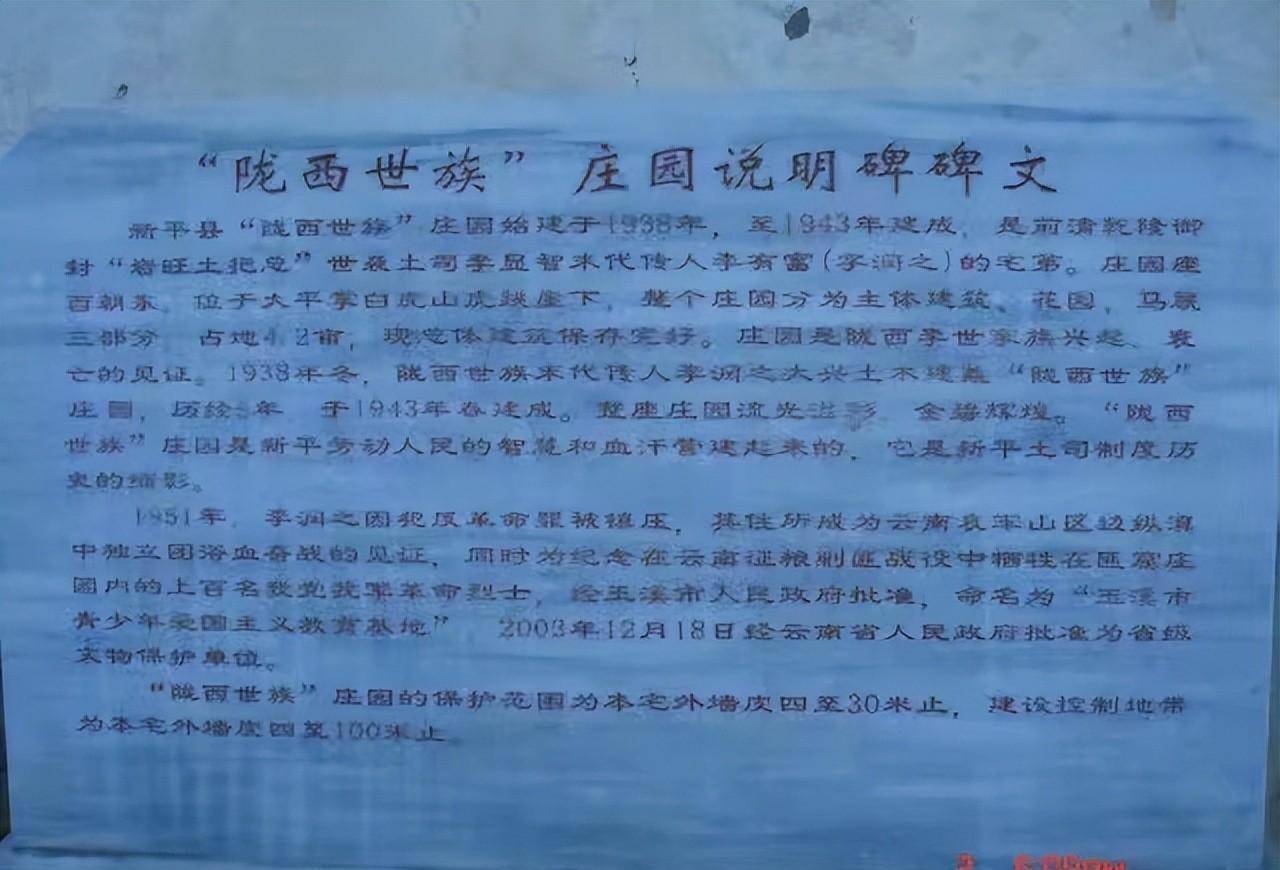 “陇西世族”庄园说明碑碑文
新平县“陇西世族”庄园始建于1938年，至1943年建成，是前清乾隆御
封“岩旺土把总”世袭土司李显智末代传人李有富(李润之)的宅第。庄园座
西朝东，位于太平掌白虎山虎踞崖下，整个庄园分为主体建筑、花园，马厩
三部分，占地4.2亩，现总体建筑保存完好。庄园是陇西李世家族兴起、衰
亡的见证。1938年冬，陇西世族末代传人李润之大兴土木建盖“陇西世族”
庄园，历经5年，于1943年春建成。整座庄园流光溢彩，金碧辉煌。“陇西
世族”庄园是新平劳动人民的智慧和血汗营建起来的，它是新平土司制度历
史的缩影。
1951年，李润之因犯反革命罪被镇压，其住所成为云南哀牢山区边纵滇
中独立团浴血奋战的见证，同时为纪念在云南征粮剿匪战役中牺牲在匪窝庄
园内的上百名我党我军革命烈士，经玉溪市人民政府批准，命名为“玉溪市
青少年爱国主义教育基地” 2003年12月18日经云南省人民政府批准为省级
文物保护单位。
“陇西世族”庄园的保护范围为本宅外墙皮四至30米止，建设控制地带
为本宅外墙皮四至100米止